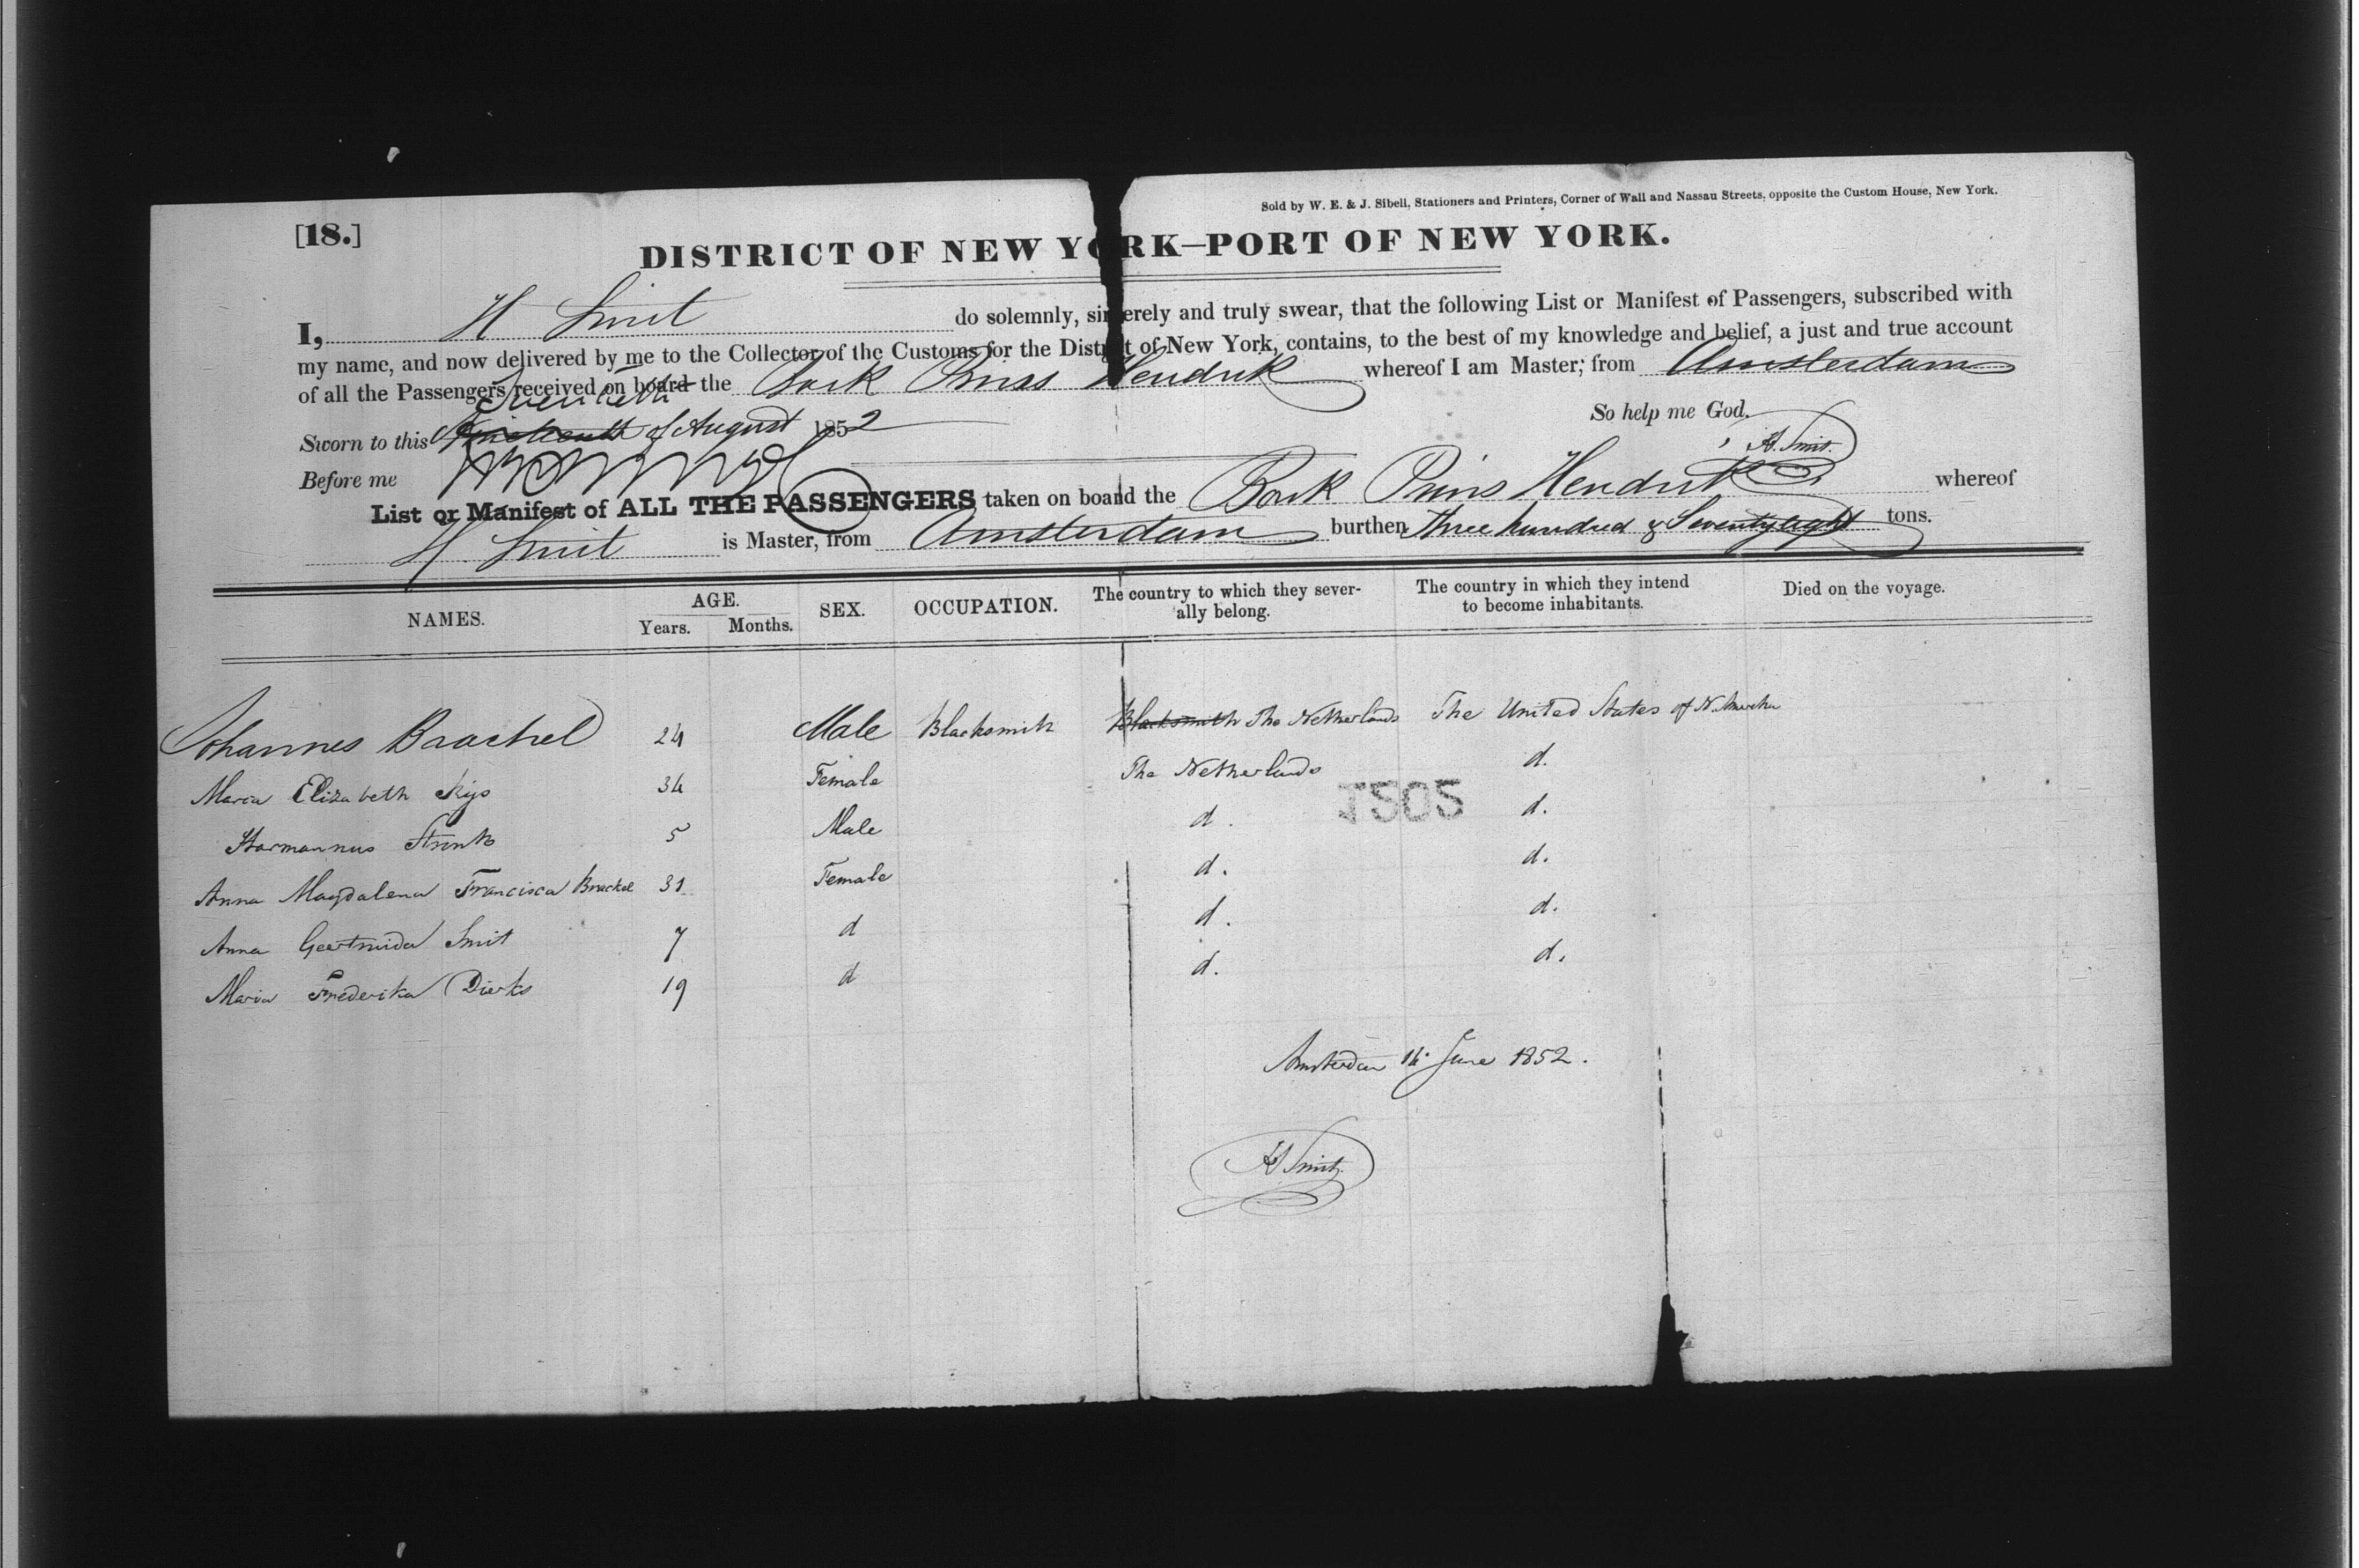 Sold by W. E. & J. Sibell, Stationers and Printers, Corner of Wall and Nassau Streets, opposite the Custom House, New York.
[18.]
DISTRICT OF NEW YORK—PORT OF NEW YORK.
I, H Smit do solemnly, sincerely and truly swear, that the following List or Manifest of Passengers, subscribed with
my name, and now delivered by me to the Collector of the Customs for the District of New York, contains, to the best of my knowledge and belief, a just and true account
of all the Passengers received on board the Bark Prins Hendrik whereof I am Master; from Amsterdam
Twentieth
So help me God.
Sworn to this Nineteenth of August 1852
H. Smit.
Before me
List or Manifest of ALL THE PASSENGERS taken on board the Bark Prins Hendrik whereof
H Smit is Master, from Amsterdam burthen Three hundred & Seventy eight tons.
NAMES. AGE. Years. Months. SEX. OCCUPATION. The country to which they severally belong. The country in which they intend to become inhabitants. Died on the voyage.
Johannes Brachel 24 Male Blacksmith Blacksmith The Netherlands The United States of N. America
Maria Elizabeth 34 Female The Netherlands d.
Harmannus 5 Male d. d.
1505
Anna Magdalena Francisca Brachel 31 Female d. d.
Anna Geertruida Smit 7 d d. d.
Maria Frederika Dierks 19 d d. d.
Amsterdam 14 June 1852.
H Smit.